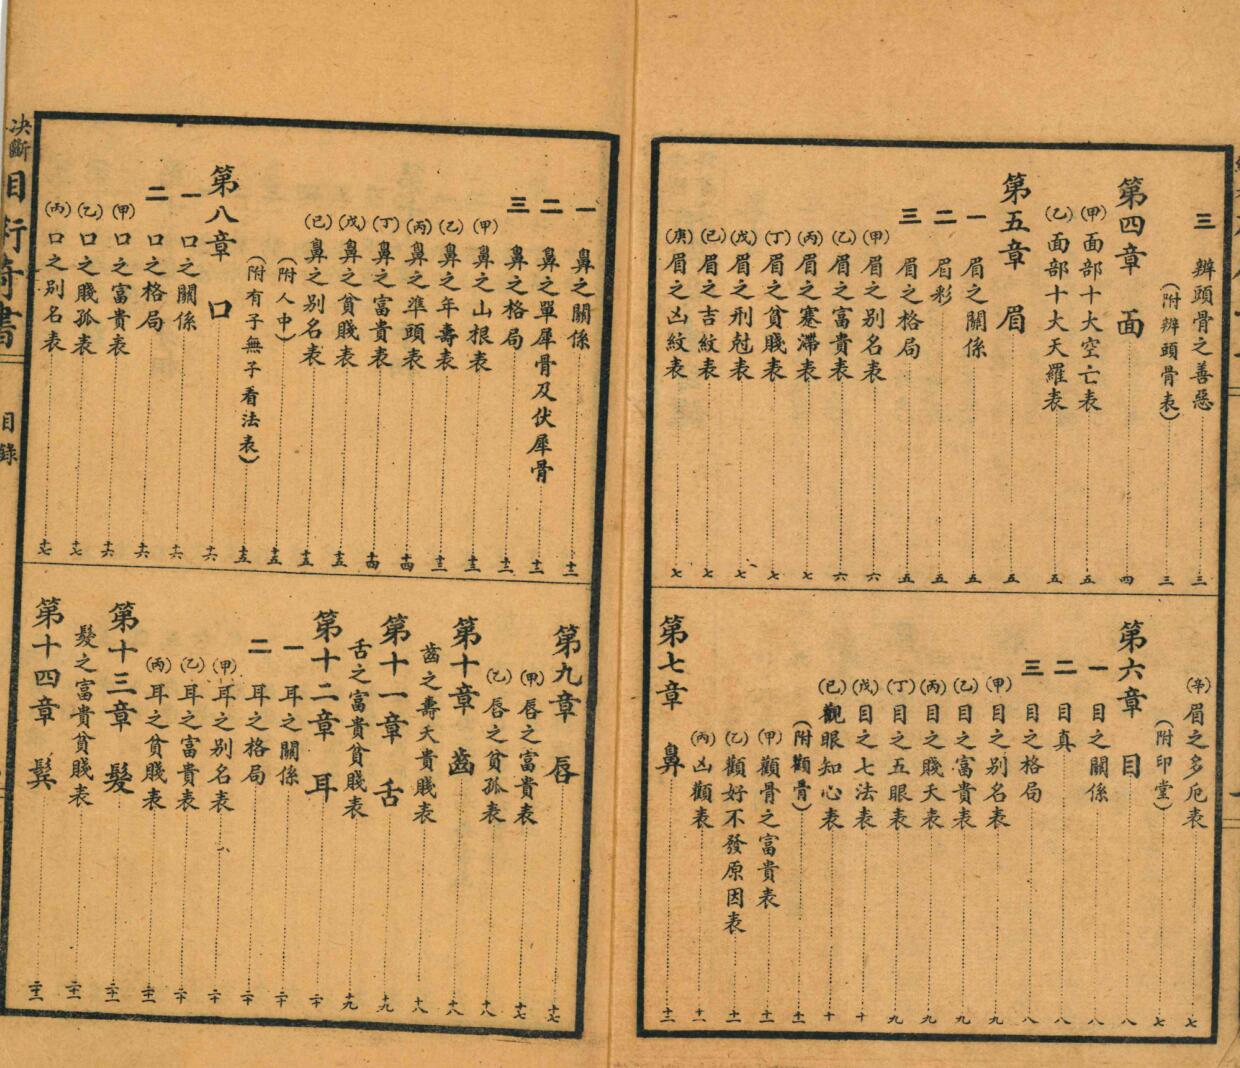 三　辨頭骨之善惡　三
（附辨頭骨表）　三
第四章　面　四
（甲）面部十大空亡表　五
（乙）面部十大天羅表　五
第五章　眉　五
一　眉之關係　五
二　眉彩　五
三　眉之格局　五
（甲）眉之別名表　六
（乙）眉之富貴表　六
（丙）眉之蹇滯表　七
（丁）眉之貧賤表　七
（戊）眉之刑尅表　七
（己）眉之吉紋表　七
（庚）眉之凶紋表　七
（辛）眉之多厄表　七
（附印堂）　七
第六章　目　八
一　目之關係　八
二　目真　八
三　目之格局　八
（甲）目之別名表　九
（乙）目之富貴表　九
（丙）目之賤夭表　九
（丁）目之五眼表　九
（戊）目之七法表　十
（己）觀眼知心表　十
（附顴骨）　十一
（甲）顴骨之富貴表　十一
（乙）顴好不發原因表　十一
（丙）凶顴表　十一
第七章　鼻　十二
一　鼻之關係　十二
二　鼻之單犀骨及伏犀骨　十三
三　鼻之格局　十三
（甲）鼻之山根表　十三
（乙）鼻之年壽表　十三
（丙）鼻之準頭表　十四
（丁）鼻之富貴表　十四
（戊）鼻之貧賤表　十五
（己）鼻之別名表　十五
（附人中）　十五
（附有子無子看法表）　十五
第八章　口　十六
一　口之關係　十六
二　口之格局　十六
（甲）口之富貴表　十六
（乙）口之賤孤表　十七
（丙）口之別名表　十七
第九章　唇　十七
（甲）唇之富貴表　十七
（乙）唇之貧孤表　十八
第十章　齒　十八
齒之壽夭貴賤表　十八
第十一章　舌　十九
舌之富貴貧賤表　十九
第十二章　耳　二十
一　耳之關係　二十
二　耳之格局　二十
（甲）耳之別名表　二十
（乙）耳之富貴表　二十
（丙）耳之貧賤表　二十一
第十三章　髮　二十一
髮之富貴貧賤表　二十二
第十四章　鬢　二十二
決斷
目錄